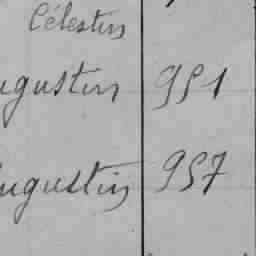 Célestin
ugustin 951
ugustin 957